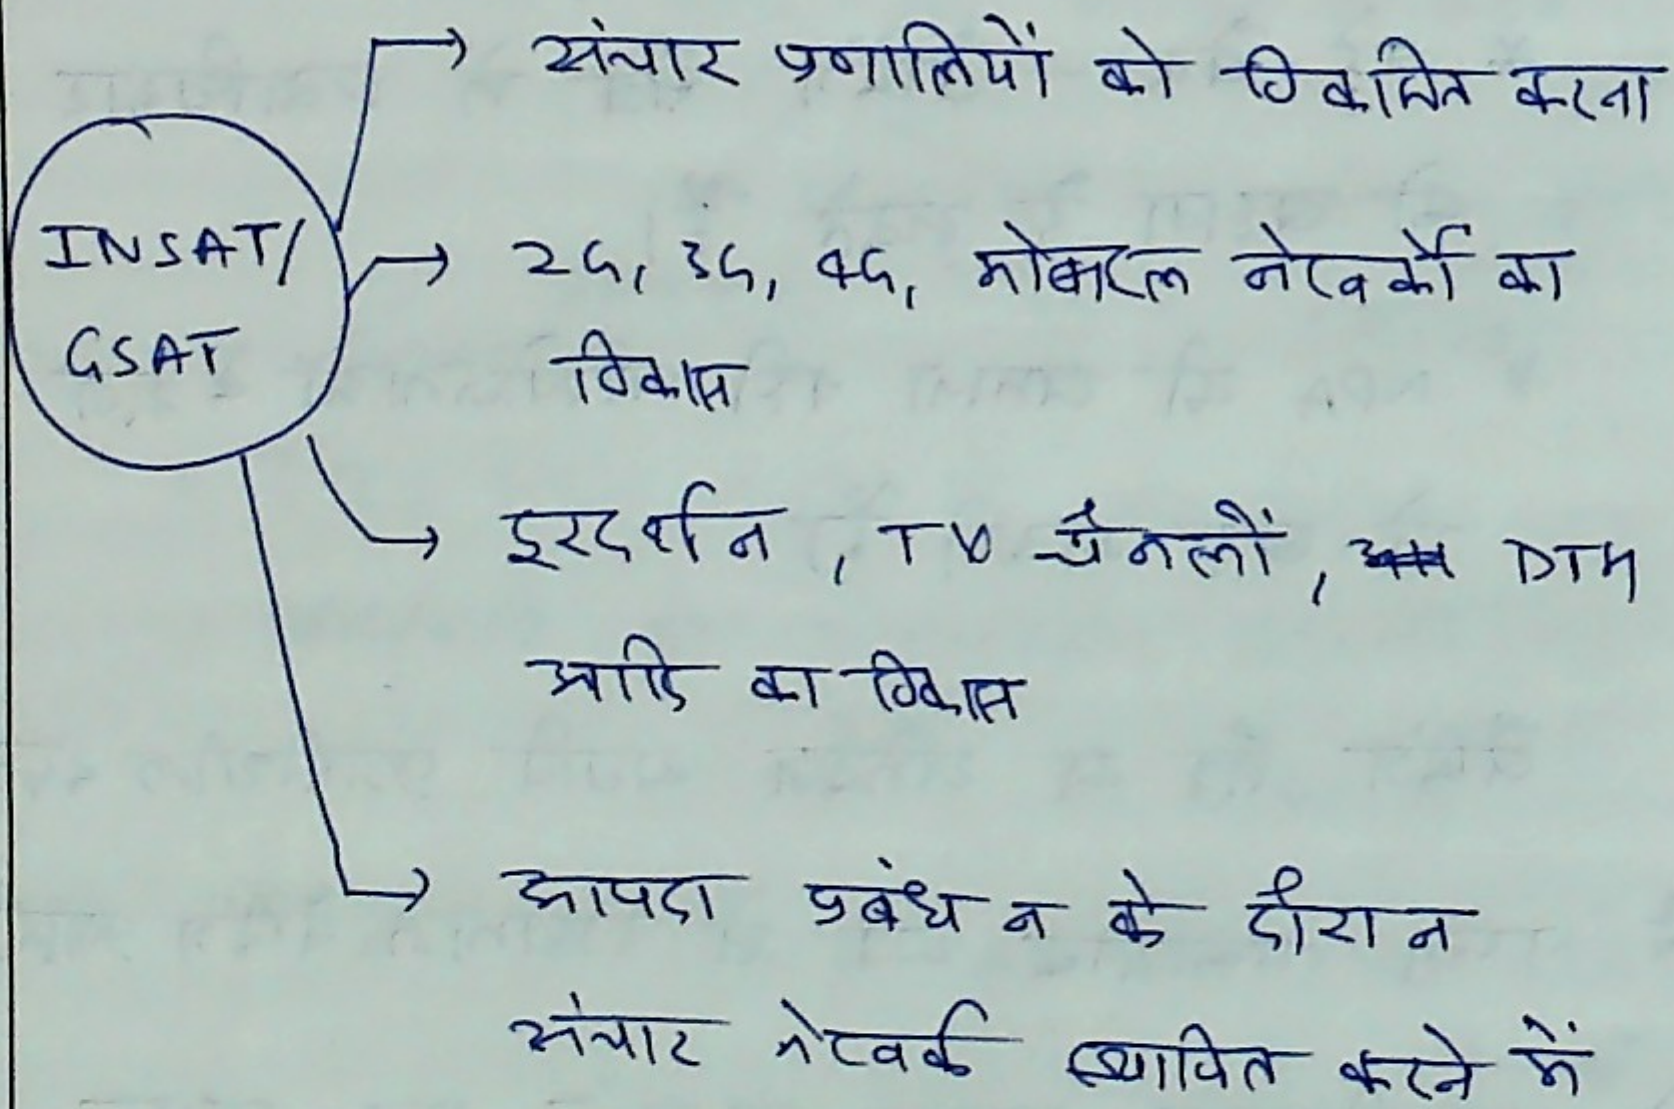 संचार प्रणालियों को विकसित करना
INSAT/
GSAT
2G, 3G, 4G, मोबाइल नेटवर्को का
विकास
दूरदर्शन, TV चैनलों, DTH
आदि का विकास
आपदा प्रबंधन के दौरान
संचार नेटवर्क स्थापित करने में